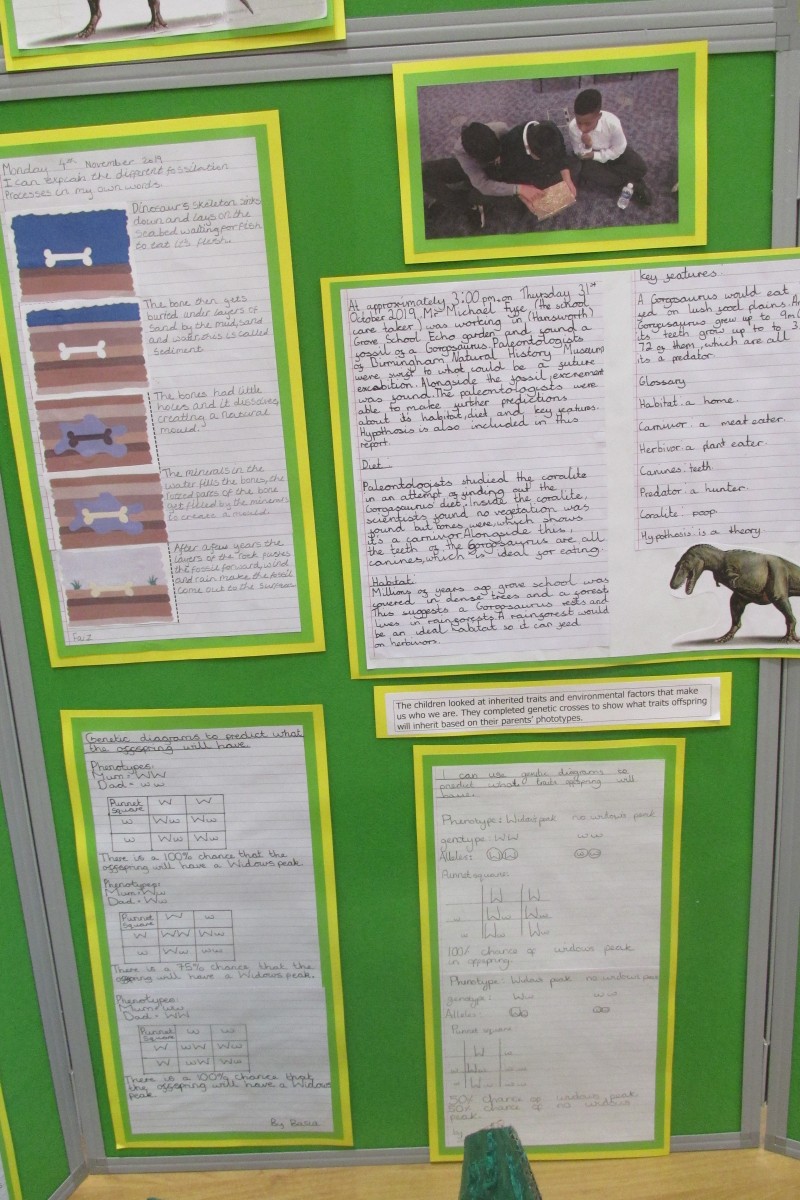 Monday 4th November 2019
I can explain the different fossilisation
Processes in my own words.
Dinosaur's skeleton sinks
down and lays on the
seabed waiting for fish
to eat it's flesh.
The bone then gets
buried under layers of
sand by the mud, sand
and water, this is called
sediment.
The bones had little
holes and it dissolves,
creating a natural
mould.
The minerals in the
water fills the bones, the
parts of the bone
get filled by the minerals
to create a mould.
After a few years the
layers of the rock pushes
the fossile forward, wind
and rain make the fossil
come out to the surface
Faiz
At approximately, 3:00 pm on Thursday 31st
October 2019, Mr Michael Fyfe (the school
care taker) was working in (Hansworth)
Grove School Echo garden and found a
fossil of a Gorgosaurus. Paleontologists
of Birmingham Natural History Museum
were swift to what could be a future
exabition. Alongside the fossil, excrement
was found. The paleontologists were
able to make further predictions
about its habitat, diet, and key features.
Hypothesis is also included in this
report.
Diet
Paleontologists studied the coralite
in an attempt of finding out the
Gorgosaurus' diet. Inside the coralite,
scientists found no vegetation was
found but bones were, which shows
it's a carnivor. Alongside this,
the teeth of the Gorgosaurus are all
canines, which is ideal for eating.
Habitat
Millions of years ago grove school was
covered in dense trees and a forest
This suggests a Gorgosaurus rests and
lives in rainforests. A rainforest would
be an ideal habitat so it can feed
on herbivors.
key features
A Gorgosaurus would eat
fed on lush food plains. An
Gorgosaurus grew up to 9m
its teeth grow up to to 3.
72 of them, which are all
its a predator.
Glossary
Habitat: a home.
Carnivor: a meat eater.
Herbivor: a plant eater.
Canines: teeth.
Predator: a hunter.
Coralite: poop
Hypothesis: is a theory
The children looked at inherited traits and environmental factors that make
us who we are. They completed genetic crosses to show what traits offspring
will inherit based on their parents' phototypes.
Genetic diagrams to predict what
the offspring will have.
Phenotypes:
Mum = WW
Dad = ww
Punnet Square W W
w Ww Ww
w Ww Ww
There is a 100% chance that the
offspring will have a Widows peak
Phenotypes:
Mum = Ww
Dad = Ww
Punnet Square W w
W WW Ww
w Ww ww
There is a 75% chance, that the
offspring will have a Widows peak.
Phenotypes:
Mum = ww
Dad = WW
Punnet Square w w
W wW Ww
W wW Ww
There is a 100% chance that
the offspring will have a Widows
peak
I can use genetic diagrams to
predict what traits offspring will
have.
Phenotype: Widows peak no widows peak
genotype: WW ww
Alleles: W W w w
Punnet square:
W W
w Ww Ww
w Ww Ww
100% chance of widows peak
in offspring.
Phenotype: Widows peak no widows peak
genotype: Ww ww
Alleles:
Punnet square
W w
w Ww ww
w Ww ww
50% chance of widows peak
50% chance of no widows
peak.
by